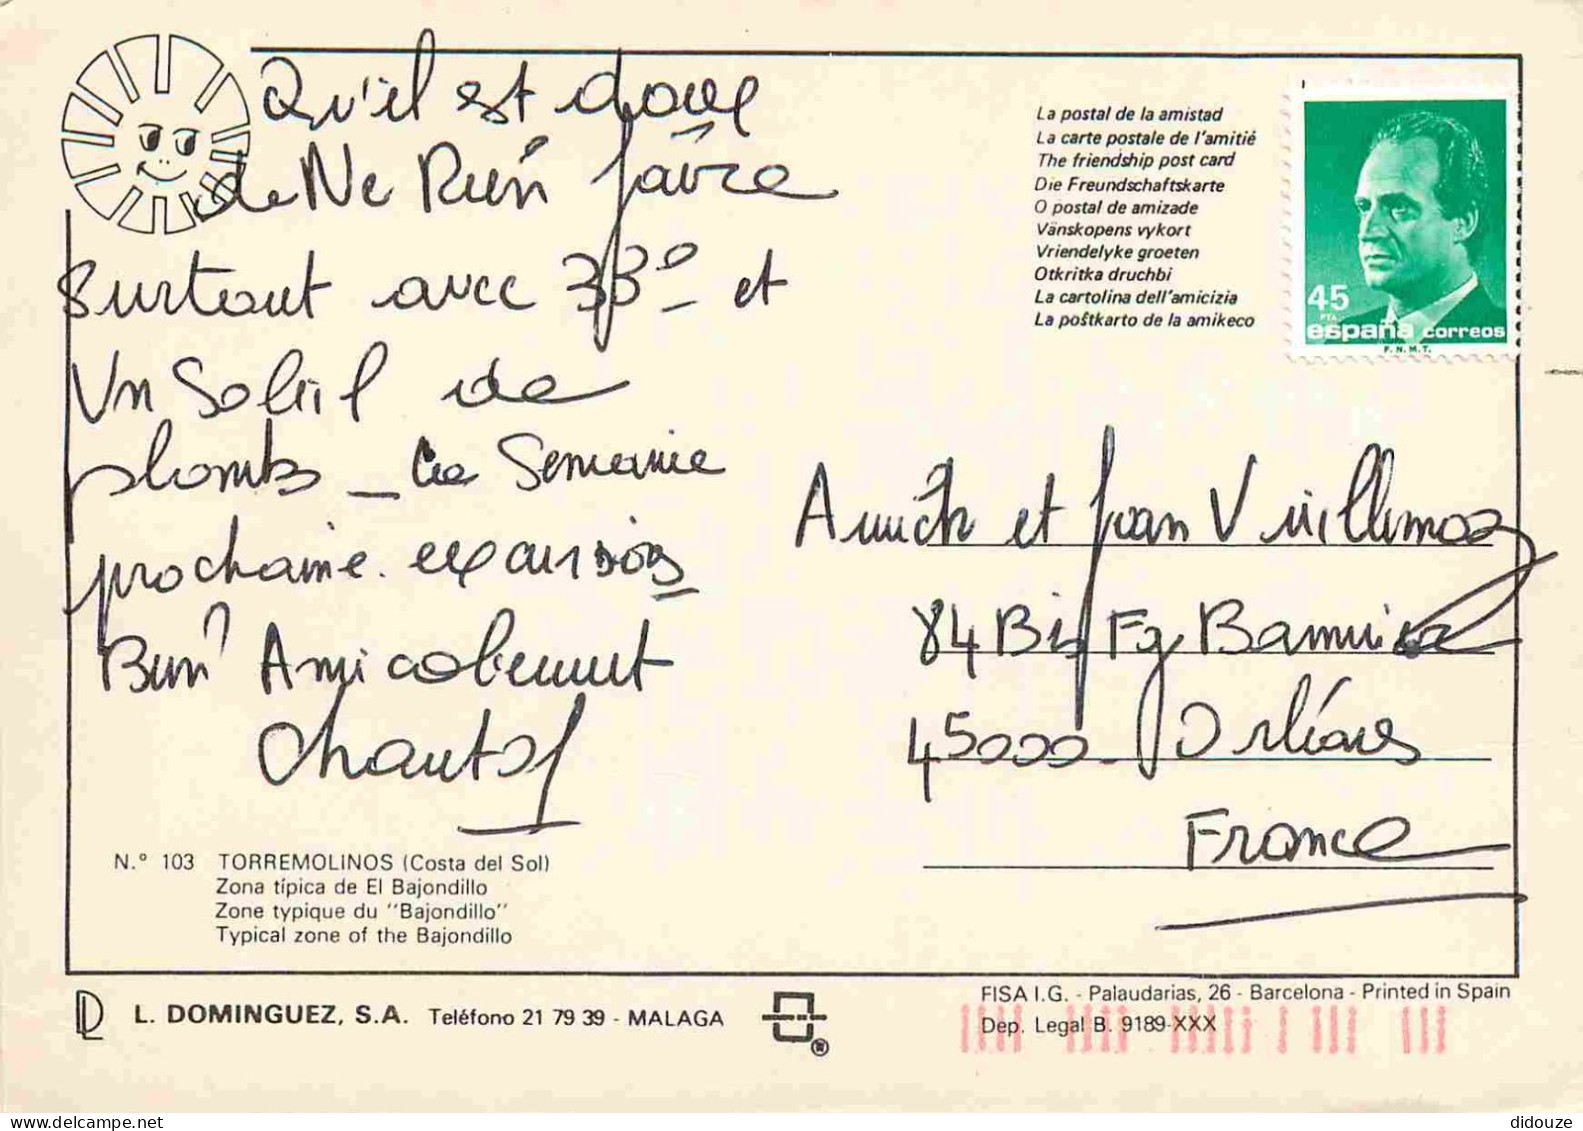 Qu'il est doux
de Ne Rien faire
Surtout avec 33° et
Un Soleil de
plombs _ La Semaine
prochaine. excursions
Bien Amicalement
Chantal
La postal de la amistad
La carte postale de l'amitié
The friendship post card
Die Freundschaftskarte
O postal de amizade
Vänskopens vykort
Vriendelyke groeten
Otkritka druchbi
La cartolina dell'amicizia
La poŝtkarto de la amikeco
45
PTA
españa correos
F.N.M.T.
Annick et Jean Vuillemoz
84 Bis Fg Bannier
45000 - Orléans
France
N.° 103 TORREMOLINOS (Costa del Sol)
Zona típica de El Bajondillo
Zone typique du "Bajondillo"
Typical zone of the Bajondillo
L. DOMINGUEZ, S.A. Teléfono 21 79 39 - MALAGA
FISA I.G. - Palaudarias, 26 - Barcelona - Printed in Spain
Dep. Legal B. 9189-XXX
didouze